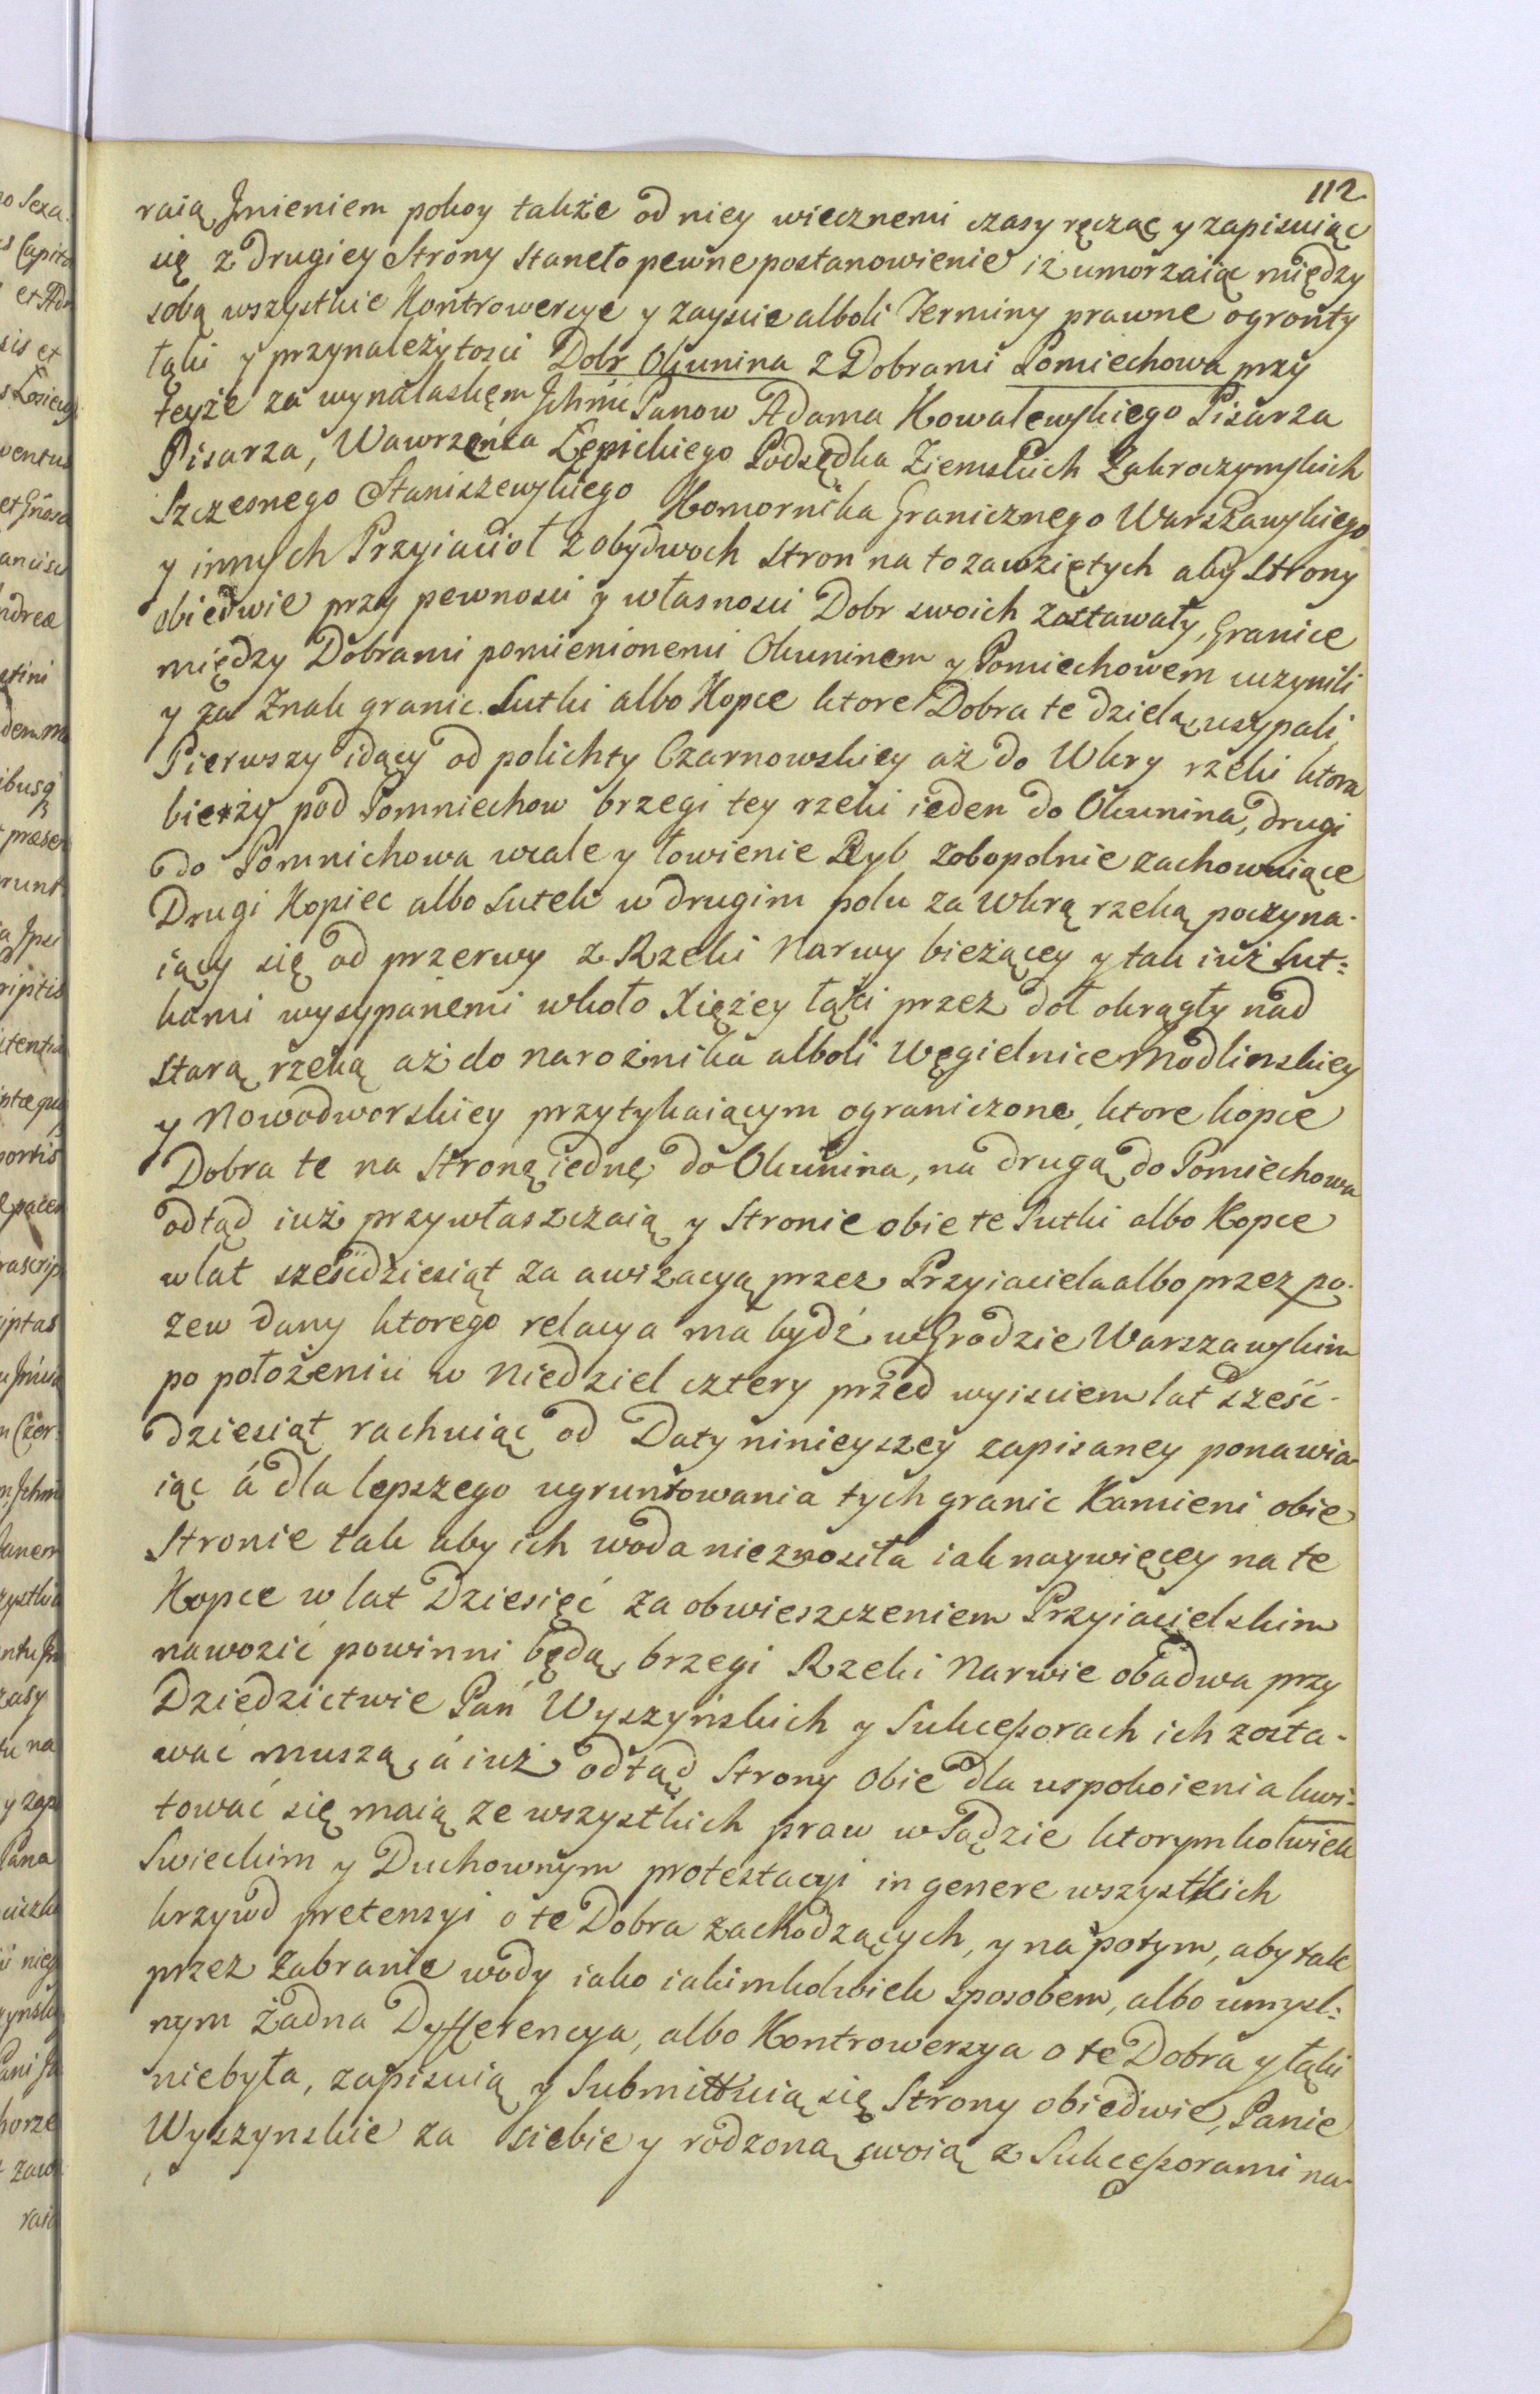 112
raią Jmieniem pokoy także od niey wiecznemi czasy ręcząc y zapisuiąc
się z drugiey Strony staneło pewne postanowienie iż umorzaiąc między
sobą wszystkie Kontrowersye y zayscie alboli Terminy prawne o gronty
łąki y przynależytosci Dobr Okunina z Dobrami Pomiechowa przy
teyże za wynalaskęm Jchmć Panow Adama Kowalewskiego Pisarza
Pisarza, Wawrzeńca Lępickiego Podsędka Ziemskich Zakroczymskich
Szczesnego Staniszewskiego Komornika Granicznego Warszawskiego
y innych Przyiacioł z obydwoch stron na to zawziętych aby Strony
obiedwie przy pewnosci y własnosci Dobr swoich zostawały, Granice
między Dobrami pomienionemi Okuninem y Pomiechowem uczynili
y za Znak granic. Sutki albo Kopce ktore Dobra te dzielą usypali
Pierwszy idący od polichty Czarnowskiey aż do Wkry rzeki ktora
bierży pod Pomniechow brzegi tey rzeki ieden do Okunina, drugi
do Pomnichowa wcale y łowienie Ryb zobopolnie zachowuiące
Drugi Kopiec albo Sutek w drugim polu za Wkrą rzeką poczyna-
iący się od przerwy z Rzeki Narwy bieżącey y tak iuż Sut-
kami wysypanemi wkoło Xiężey łąki przez doł okrągły nad
starą rzeką aż do narożnika alboli Węgielnice Modlinskiey
y Nowodworskiey przytykaiącym ograniczone, ktore kopce
Dobra te na stronę iednę do Okunina, na drugą do Pomiechowa
odtąd iuż przywłaszczaią y Stronie obie te Sutki albo Kopce
w lat sześćdziesiąt za awizacyą przez Przyiaciela albo przez po-
zew dany ktorego relacya ma bydź w Grodzie Warszawskim
po położeniu w Niedziel cztery przed wyisciem lat sześć-
dziesiąt rachuiąc od Daty ninieyszey zapisaney ponawia-
iąc á dla lepszego ugruntowania tych granic Kamieni obie
Stronie tak aby ich woda nieznosiła iak naywięcey na te
Kopce w lat Dziesięć za obwieszczeniem Przyiacielskim
nawozić powinni będą, brzegi Rzeki Narwie obadwa przy
Dziedzictwie Pań Wyszyńskich y Sukcessorach ich zosta-
wać muszą, á iuż odtąd Strony obie dla uspokoienia kwi-
tować się maią ze wszystkich praw w Sądzie ktorymkolwiek
Swieckim y Duchownym protestacyi in genere wszystkich
krzywd pretensyi o te Dobra zachodzących, y na potym, aby tak
przez Zabranie wody iako iakimkolwiek sposobem, albo umysl-
nym żadna Dyfferencya, albo Kontrowersya o te Dobra y łąki
niebyła, zapisuią y Submittuią się Strony obiedwie, Panie
Wyszynskie za siebie y rodzoną swoią z Sukcessorami na-